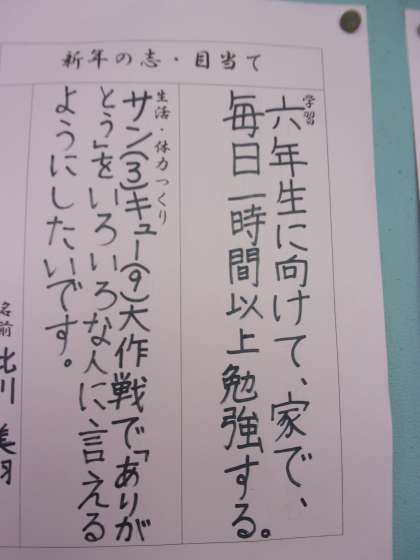 新年の志・目当て
学習
六年生に向けて、家で、
毎日一時間以上勉強する。
生活・体力つくり
サン(3)キュー(9)大作戦で「ありが
とう」をいろいろな人に言える
ようにしたいです。
名前
比川 美羽